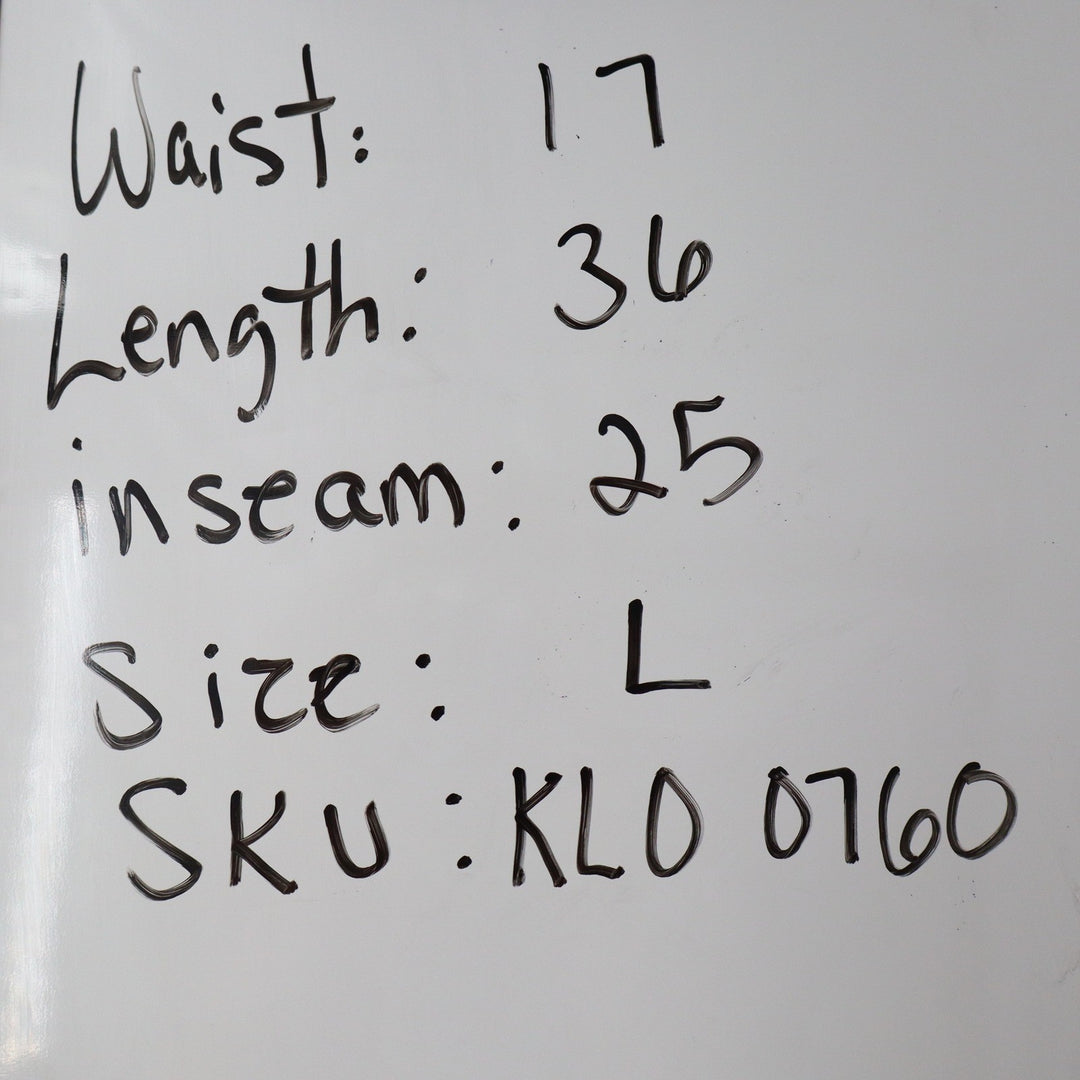 Waist: 17
Length: 36
inseam: 25
Size: L
SKU: KLO 0760